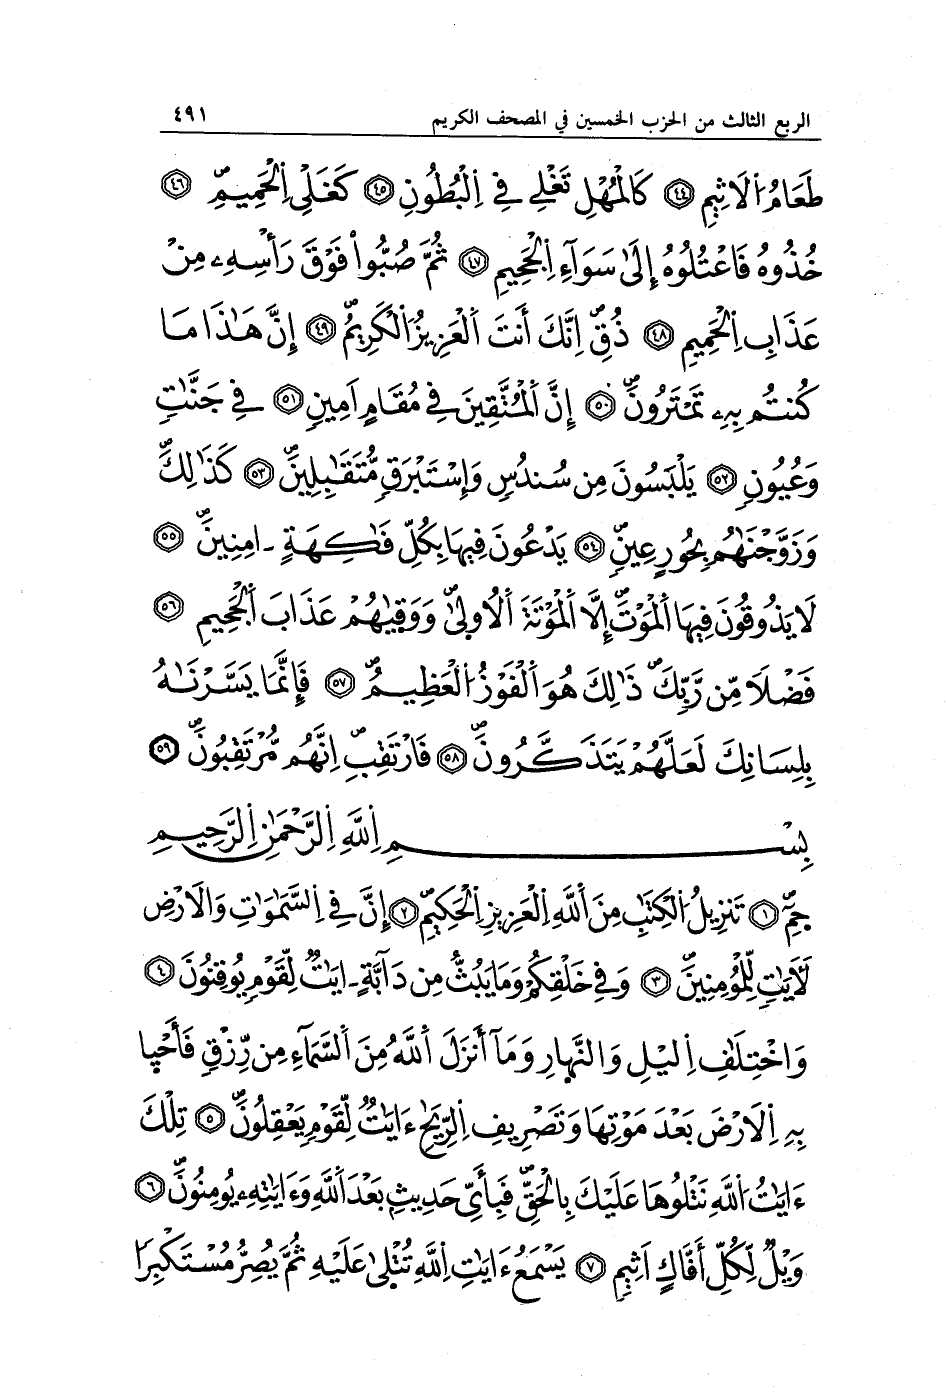 الربع الثالث من الحزب الخمسين في المصحف الكريم ٤٩١
طَعَامُ اُ۬لَاثِيمِ ٤٤ كَالْمُهْلِ تَغْلِے فِے اِ۬لْبُطُونِ ٤٥ كَغَلْيِ اِ۬لْحَمِيمِۖ ٤٦
خُذُوهُ فَاعْتُلُوهُ إِلَىٰ سَوَآءِ اِ۬لْجَحِيمِ ٤٧ ثُمَّ صُبُّواْ فَوْقَ رَأْسِهِۦ مِنْ
عَذَابِ اِ۬لْحَمِيمِ ٤٨ ذُقِۖ اِنَّكَ أَنتَ اَ۬لْعَزِيزُ اُ۬لْكَرِيمُۖ ٤٩ إِنَّ هَـٰذَا مَا
كُنتُم بِهِۦ تَمْتَرُونَۖ ٥٠ إِنَّ اَ۬لْمُتَّقِينَ فِے مُقَامٍ اَمِينٍ ٥١ فِے جَنَّـٰتٖ
وَعُيُونٖ ٥٢ يَلْبَسُونَ مِن سُندُسٖ وَإِسْتَبْرَقٖ مُّتَقَـٰبِلِينَۖ ٥٣ كَذَٰلِكَۖ
وَزَوَّجْنَـٰهُم بِحُورٍ عِينٖۖ ٥٤ يَدْعُونَ فِيهَا بِكُلِّ فَـٰكِهَةٍ ـ امِنِينَۖ ٥٥
لَا يَذُوقُونَ فِيهَا اَ۬لْمَوْتَۖ إِلَّا اَ۬لْمَوْتَةَ اَ۬لُاولَىٰۖ وَوَقٜىٰهُمْ عَذَابَ اَ۬لْجَحِيمِ ٥٦
فَضْلًا مِّن رَّبِّكَۖ ذَٰلِكَ هُوَ اَ۬لْفَوْزُ اُ۬لْعَظِيمُۖ ٥٧ فَإِنَّمَا يَسَّرْنَـٰهُ
بِلِسَانِكَ لَعَلَّهُمْ يَتَذَكَّرُونَۖ ٥٨ فَارْتَقِبِۖ اِنَّهُم مُّرْتَقِبُونَۖ ٥٩
بِسْمِ اِ۬للَّهِ اِ۬لرَّحْمَـٰنِ اِ۬لرَّحِيمِ
حٜمِٓۖ ١ تَنزِيلُ اُ۬لْكِتَـٰبِ مِنَ اَ۬للَّهِ اِ۬لْعَزِيزِ اِ۬لْحَكِيمِۖ ٢ إِنَّ فِے اِ۬لسَّمَـٰوَٰتِ وَالَارْضِ
لَأٓيَـٰتٖ لِّلْمُؤْمِنِينَۖ ٣ وَفِے خَلْقِكُمْ وَمَا يَبُثُّ مِن دَآبَّةٍ ـ ايَـٰتٞ لِّقَوْمٖ يُوقِنُونَۖ ٤
وَاخْتِلَـٰفِ اِ۬ليْلِ وَالنَّهٜارِ وَمَآ أَنزَلَ اَ۬للَّهُ مِنَ اَ۬لسَّمَآءِ مِن رِّزْقٖ فَأَحْيٜا
بِهِ اِ۬لَارْضَ بَعْدَ مَوْتِهَا وَتَصْرِيفِ اِ۬لرِّيَـٰحِ ءَايَـٰتٞ لِّقَوْمٖ يَعْقِلُونَۖ ٥ تِلْكَ
ءَايَـٰتُ اُ۬للَّهِ نَتْلُوهَا عَلَيْكَ بِالْحَقِّۖ فَبِأَيِّ حَدِيثِۭ بَعْدَ اَ۬للَّهِ وَءَايَـٰتِهِۦ يُومِنُونَۖ ٦
وَيْلٞ لِّكُلِّ أَفَّاكٍ اَثِيمٖ ٧ يَسْمَعُ ءَايَـٰتِ اِ۬للَّهِ تُتْلٜىٰ عَلَيْهِ ثُمَّ يُصِرُّ مُسْتَكْبِرٗا